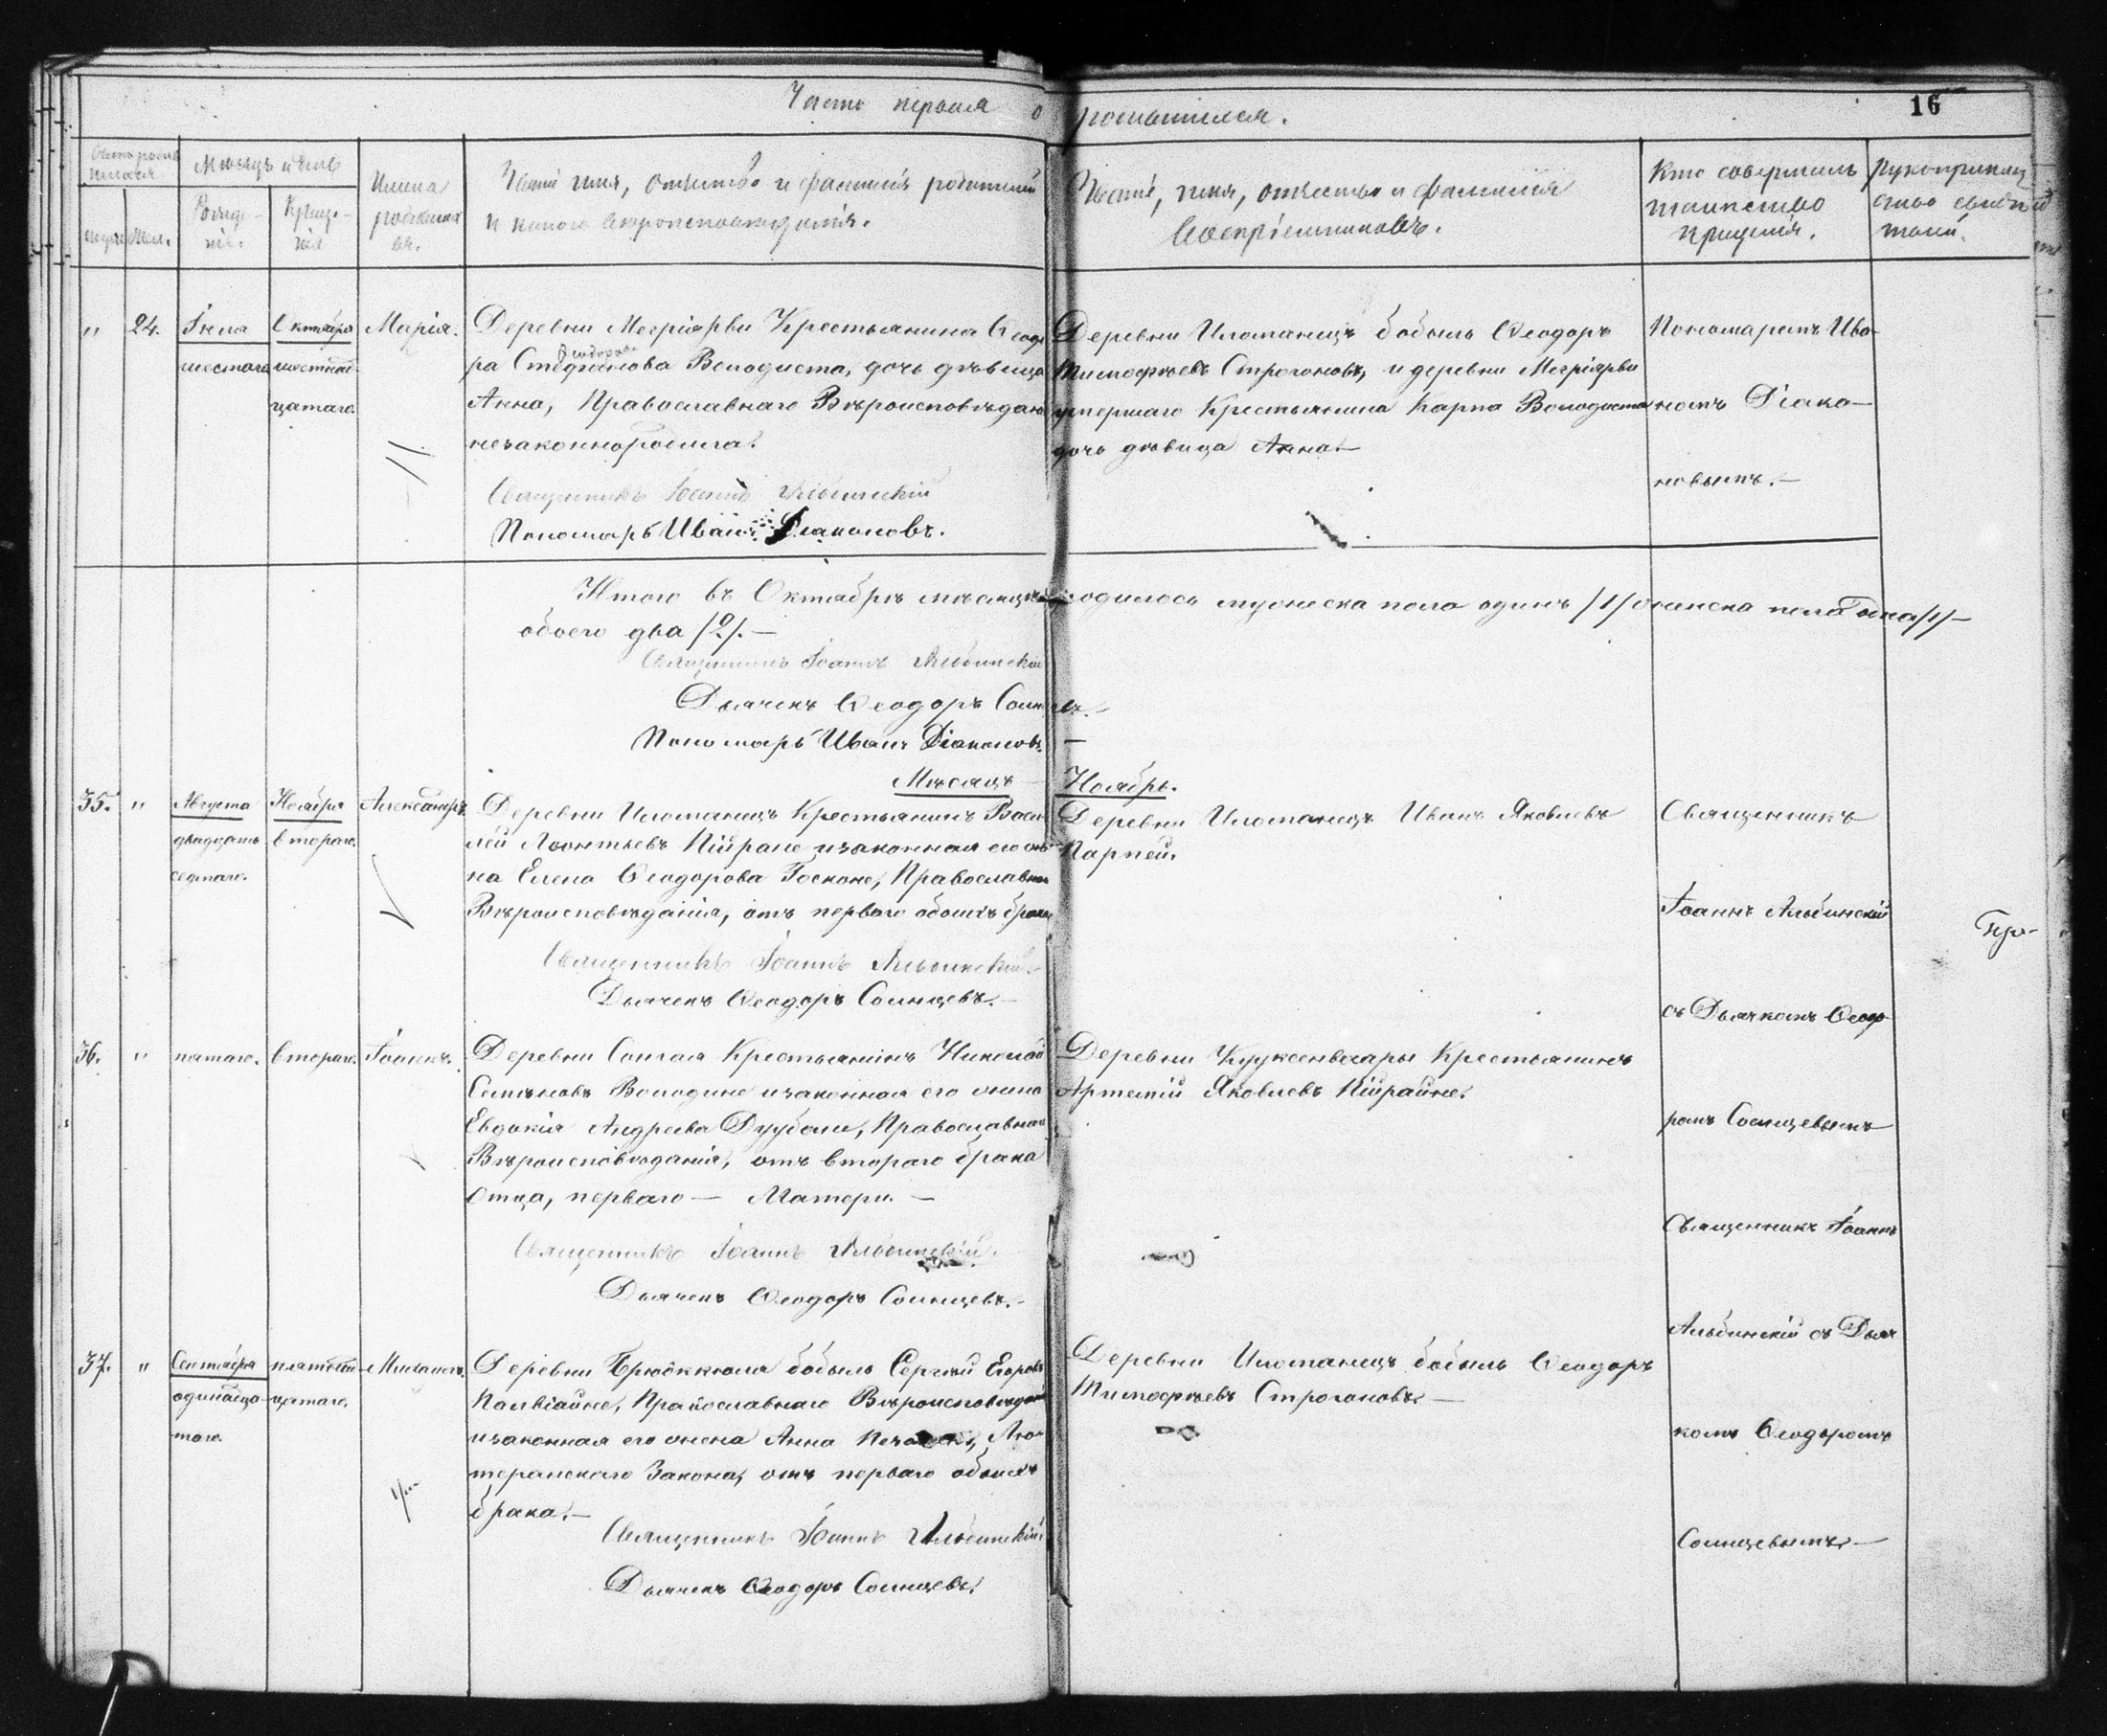 Часть первая о родившихся.
16
Счетъ родив
шихся
Мѣсяцъ и день
Имена
родивших
ся.
Званіе, имя, отчество и фамилія родителей
и какого вѣроисповѣданія.
Званіе, имя, отчество и фамилія
Воспріемниковъ.
Кто совершалъ
таинство
крещенія.
Рукоприклад
ство свидѣ
телей.
муж. Жен.
Рожде-
нія.
Креще-
нія
" 24. Іюля Октября Марія.
шестаго шестнад
цатаго.
Деревни Мегріярви Крестьянина Ѳеодо
ра Стефанова Володиста, дочь дѣвица
Ѳеодорова
Анна, Православнаго Вѣроисповѣдан
незаконнородила.
Священникъ Іоаннъ Альбинскій
Пономарь Иванъ Діаконовъ.
Деревни Иломанецъ бобыль Ѳеодоръ
Тимофѣевъ Строгоновъ, и деревни Мегріярви
умершаго Крестьянина Карпа Володиста
дочь дѣвица Анна.
Пономаремъ Ива-
номъ Діако-
новымъ.
Итого въ Октябрѣ мѣсяцѣ родилось мужеска пола одинъ /1/ женска пола одна /1/
обоего два /2/.
Священникъ Іоаннъ Альбинскій
Дьячекъ Ѳеодоръ Солнцевъ.
Пономарь Иванъ Діаконовъ.
Мѣсяцъ Ноябрь.
35. " Августа Ноября Александръ.
двадцать втораго.
седмаго.
Деревни Иломанецъ Крестьянинъ Васи
лій Леонтьевъ Пійране и законная его же
на Елена Ѳеодорова Госконе, Православна
Вѣроисповѣданія, отъ перваго обоихъ брака
Священникъ Іоаннъ Альбинскій.
Дьячекъ Ѳеодоръ Солнцевъ.
Деревни Иломанецъ Иванъ Яковлевъ
Парней.
Священникъ
Іоаннъ Альбинскій
съ Дьячкомъ Ѳеодо-
ромъ Солнцевымъ
Пр-
36. " пятаго. втораго. Іоаннъ.
Деревни Сонгая Крестьянинъ Николай
Семеновъ Володине и законная его жена
Евдокія Андреева Дуубали, Православна
Вѣроисповѣданія, отъ втораго брака
Отца, перваго — Матери. —
Священникъ Іоаннъ Альбинскій.
Дьячекъ Ѳеодоръ Солнцевъ.
Деревни Кууксенваары Крестьянинъ
Артемій Яковлевъ Пійрайне.
Священникъ Іоаннъ
Альбинскій съ Дьяч
комъ Ѳеодоромъ
Солнцевымъ.
37. " Сентября пятнад-
одинадца- цатаго.
таго.
Деревни бобыль Сергѣй Егоровъ
Палвіайне, Православнаго Вѣроисповѣдан
и законная его жена Анна Лю-
теранскаго Закона, отъ перваго обоихъ
брака.
Священникъ Іоаннъ Альбинскій
Дьячекъ Ѳеодоръ Солнцевъ.
Деревни Иломанецъ бобыль Ѳеодоръ
Тимофѣевъ Строгоновъ.